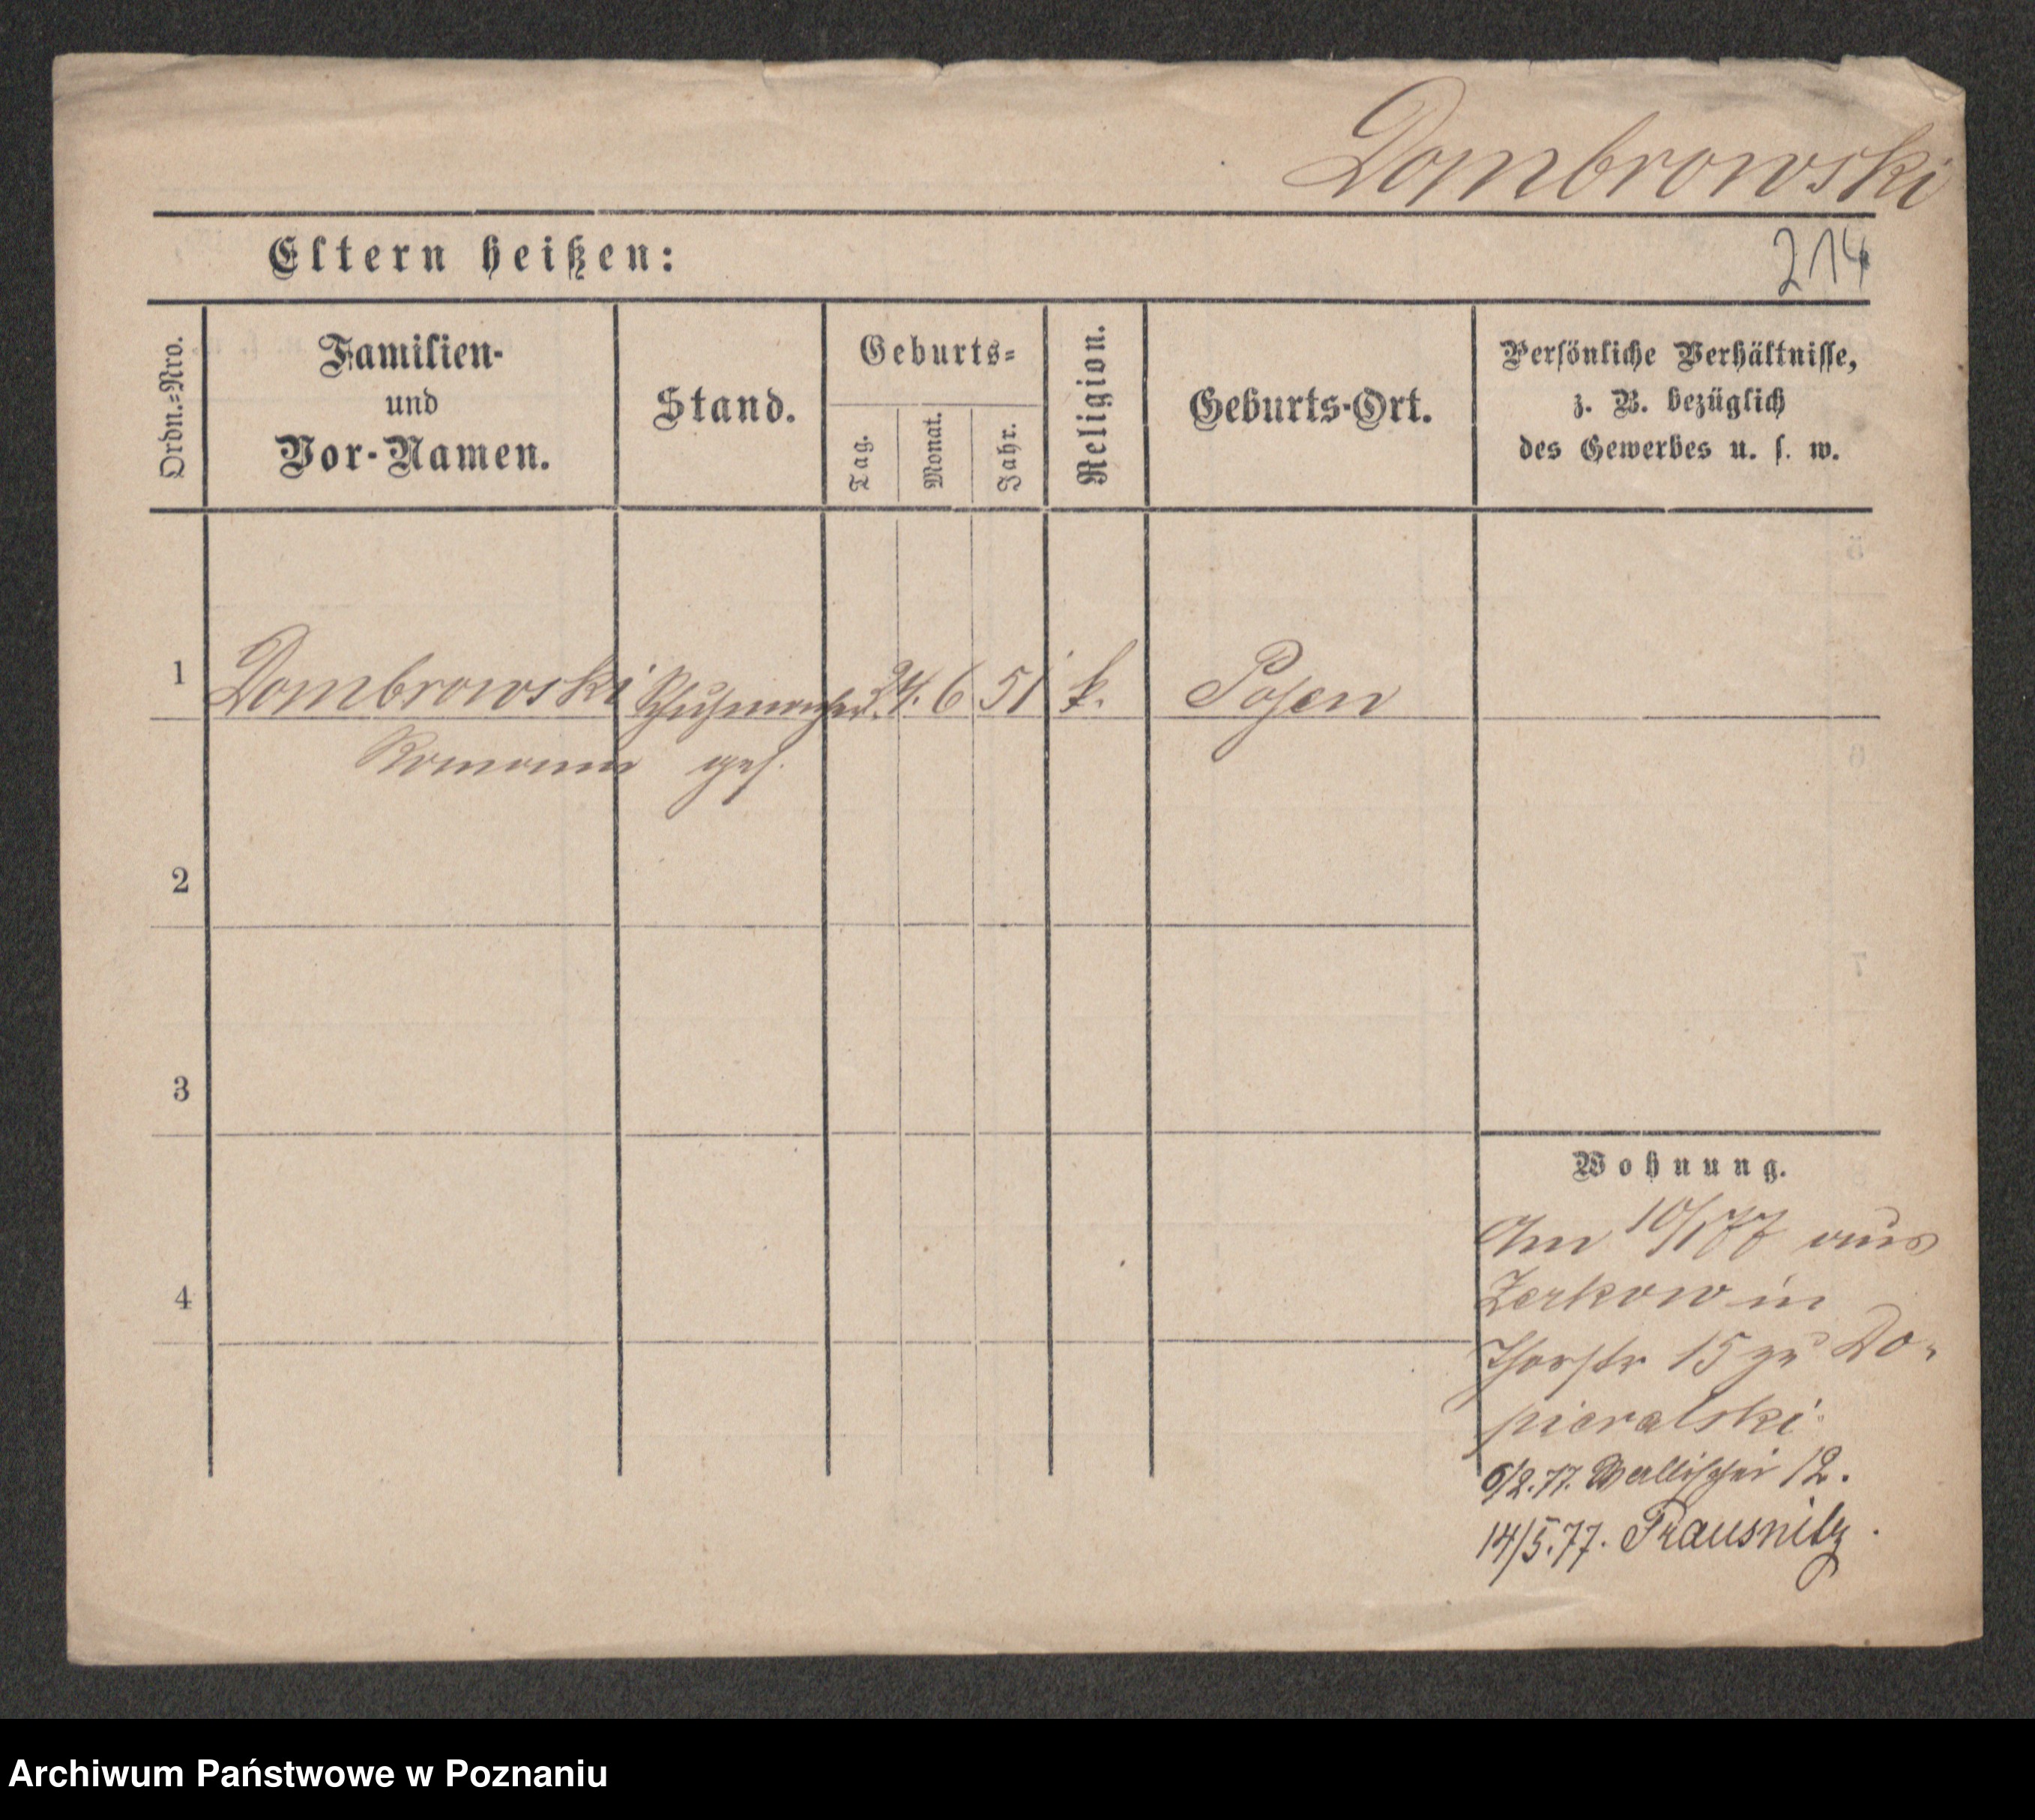 Dombrowski
Eltern heißen:
214
Ordn.=Nro.
Familien-
und
Vor-Namen.
Stand.
Geburts=
Tag.
Monat.
Jahr.
Religion.
Geburts-Ort.
Persönliche Verhältnisse,
z. B. bezüglich
des Gewerbes u. s. w.
1 Dombrowski Schuhmacher 24. 6 51 k. Posen
Roman ges.
2
3
4
Wohnung.
Am 10/1 77 aus
Zerkow in
Thorstr 15 zu Do-
pieralski.
6/2.77. Wallischei 12.
14/5.77. Prausnitz.
Archiwum Państwowe w Poznaniu